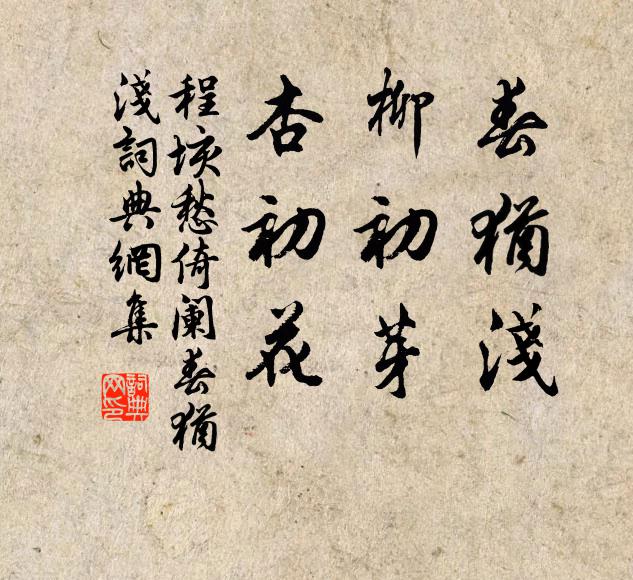 春猶淺
柳初芽
杏初花
程垓愁倚闌春猶
淺詞典網集
詞典
网印